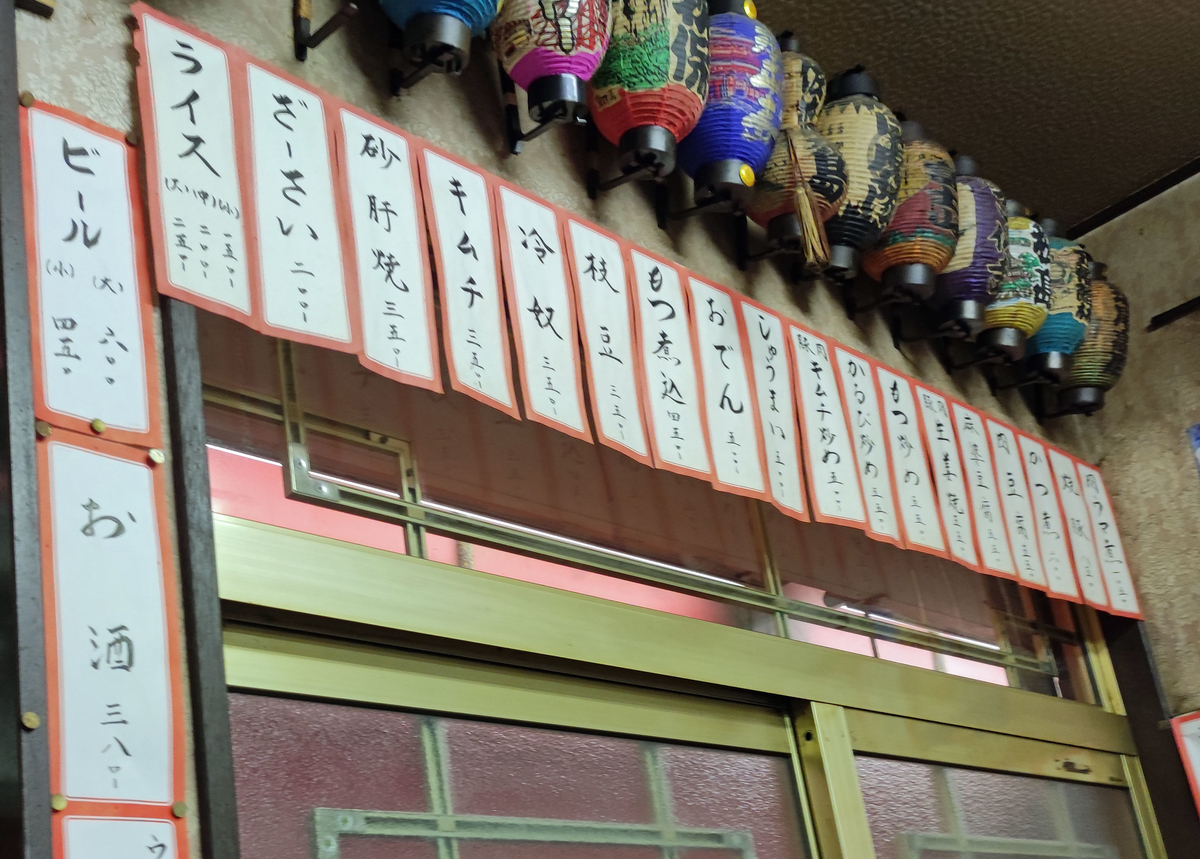 ビール
(大) 六〇〇
(小) 四五〇
お酒 三八〇-
ライス
(大)(中)(小)
一五〇-
二〇〇-
二五〇-
ざーさい 二〇〇-
砂肝焼 三五〇-
キムチ 三五〇-
冷奴 三五〇-
枝豆 三五〇-
もつ煮込 四五〇-
おでん 五〇〇-
しゅうまい 五〇〇-
豚肉キムチ炒め 五〇〇-
かるび炒め 五五〇-
もつ炒め 五五〇-
豚肉生姜焼 五五〇-
麻婆豆腐
肉豆腐
かつ煮
焼豚
肉ウマ煮
ウ